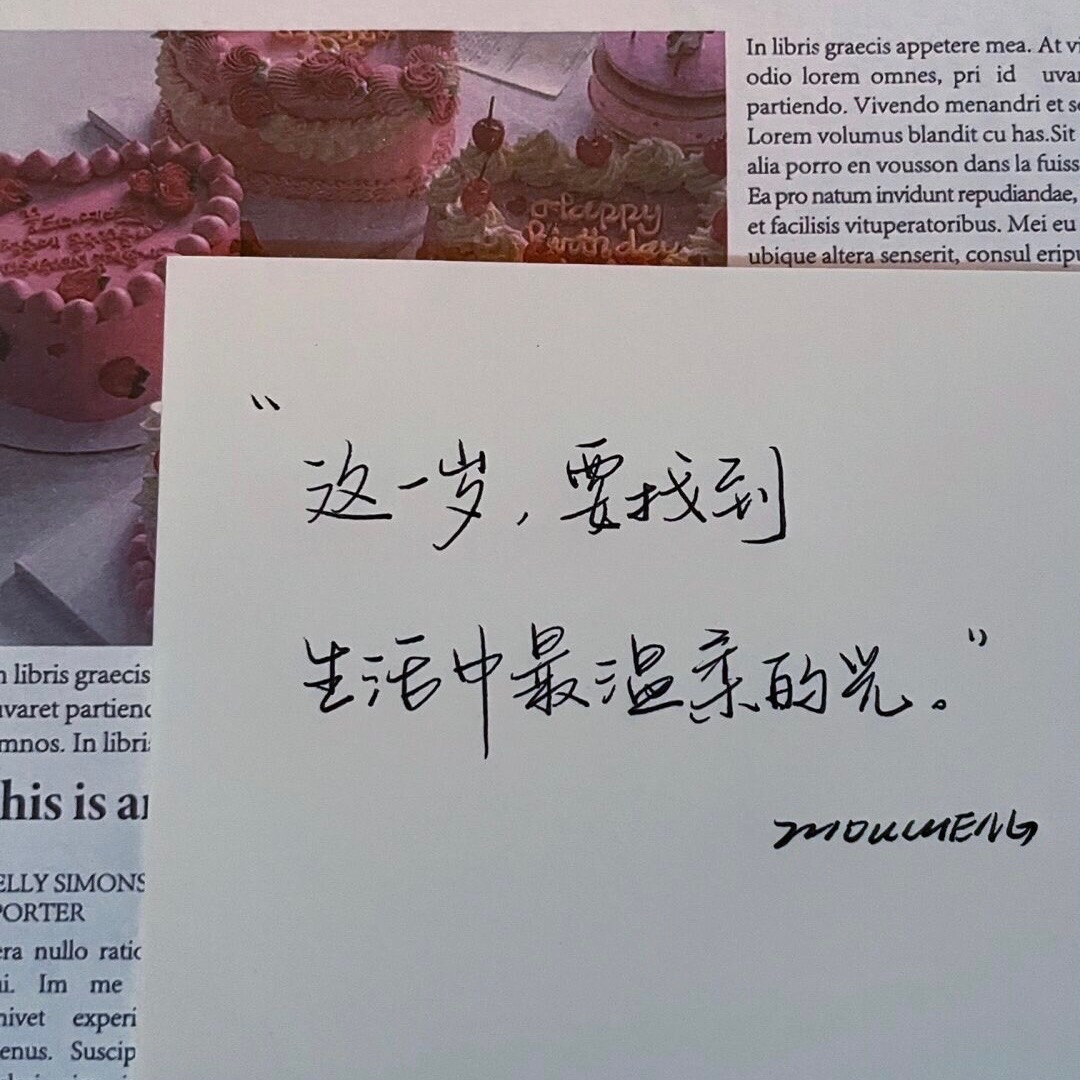 In libris graecis appetere mea. At vi
odio lorem omnes, pri id uvar
partiendo. Vivendo menandri et se
Lorem volumus blandit cu has.Sit
alia porro en vousson dans la fuiss
Ea pro natum invidunt repudiandae,
et facilisis vituperatoribus. Mei eu
ubique altera senserit, consul eripu
Happy
Birthday
“
这一岁，要找到
生活中最温柔的光。”
n libris graecis
uvaret partiend
mnos. In libri
his is an
ELLY SIMONS
PORTER
era nullo ratio
ui. Im me
nivet experi
enus. Suscip